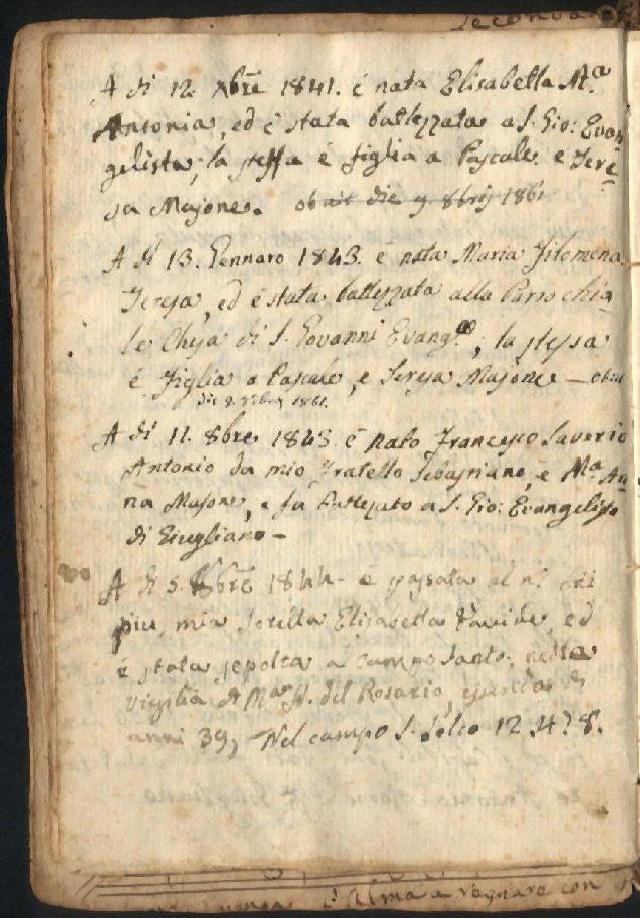 Secondo
A di 12. Xbre 1841. é nata Elisabetta Ma.
Antonia, ed é stata battezzata a S. Gio: Evan
gelista; la stessa é figlia a Pascale e Tere
sa Majone. obiit die 9. 8bris 1861
A di 13. Gennaro 1843. e nata Maria Filomena
Teresa, ed é stata battezzata alla Parrochia
le Chiesa di S. Giovanni Evang.; la stessa
é figlia a Pascale, e Teresa Majone — obiit
die
A di 11. 8bre 1843 é nato Francesco Saverio
Antonio da mio Fratello Sebastiano, e Ma. An
na Majone, e fu battezato a S. Gio: Evangelista
di Giugliano -
A di 5. 8bre 1844 - é passata al n.
piu, mia sorella Elisabetta Davide, ed
é stata sepolta a campo Santo, nella
vigilia di Ma. SS. del Rosario,
anni 39, Nel campo S. 12.
Alma a regnare con